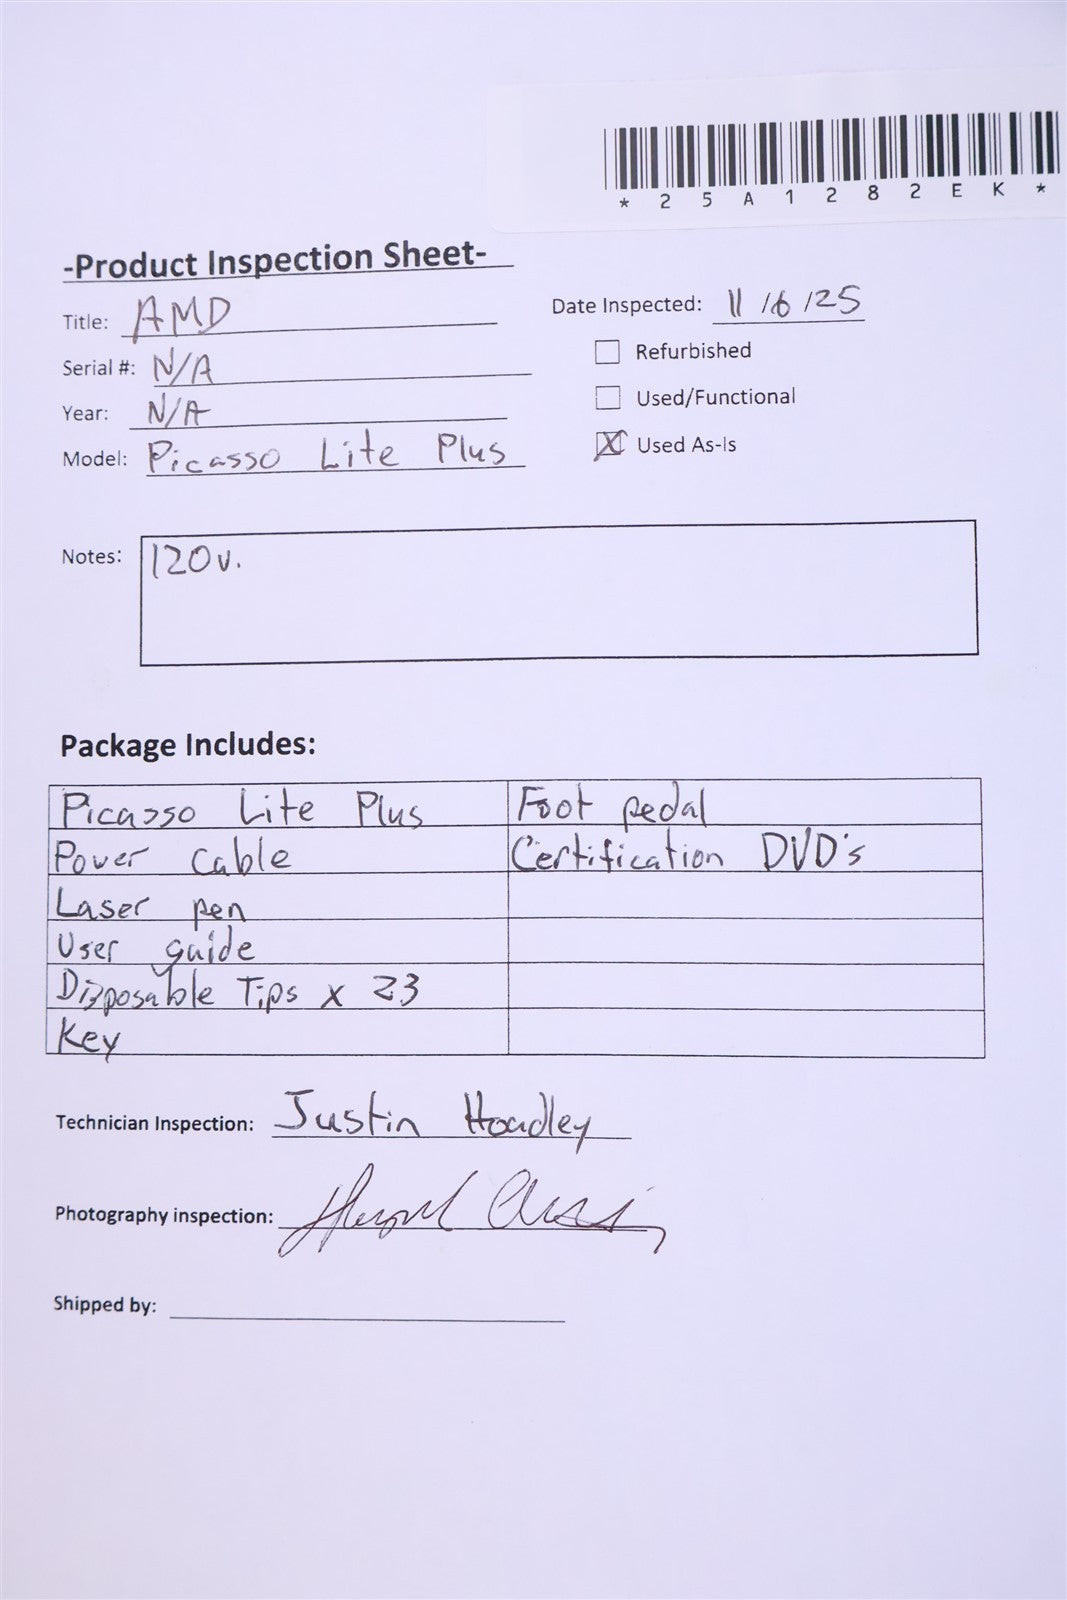 * 2 5 A 1 2 8 2 E K *
-Product Inspection Sheet-
Title: AMD
Date Inspected: 11/6/25
Serial #: N/A
Refurbished
Year: N/A
Used/Functional
Model: Picasso Lite Plus
Used As-Is
Notes: 120v.
Package Includes:
Picasso Lite Plus Foot pedal
Power cable Certification DVD's
Laser pen
User guide
Disposable Tips x 23
Key
Technician Inspection: Justin Hoadley
Photography inspection:
Shipped by: